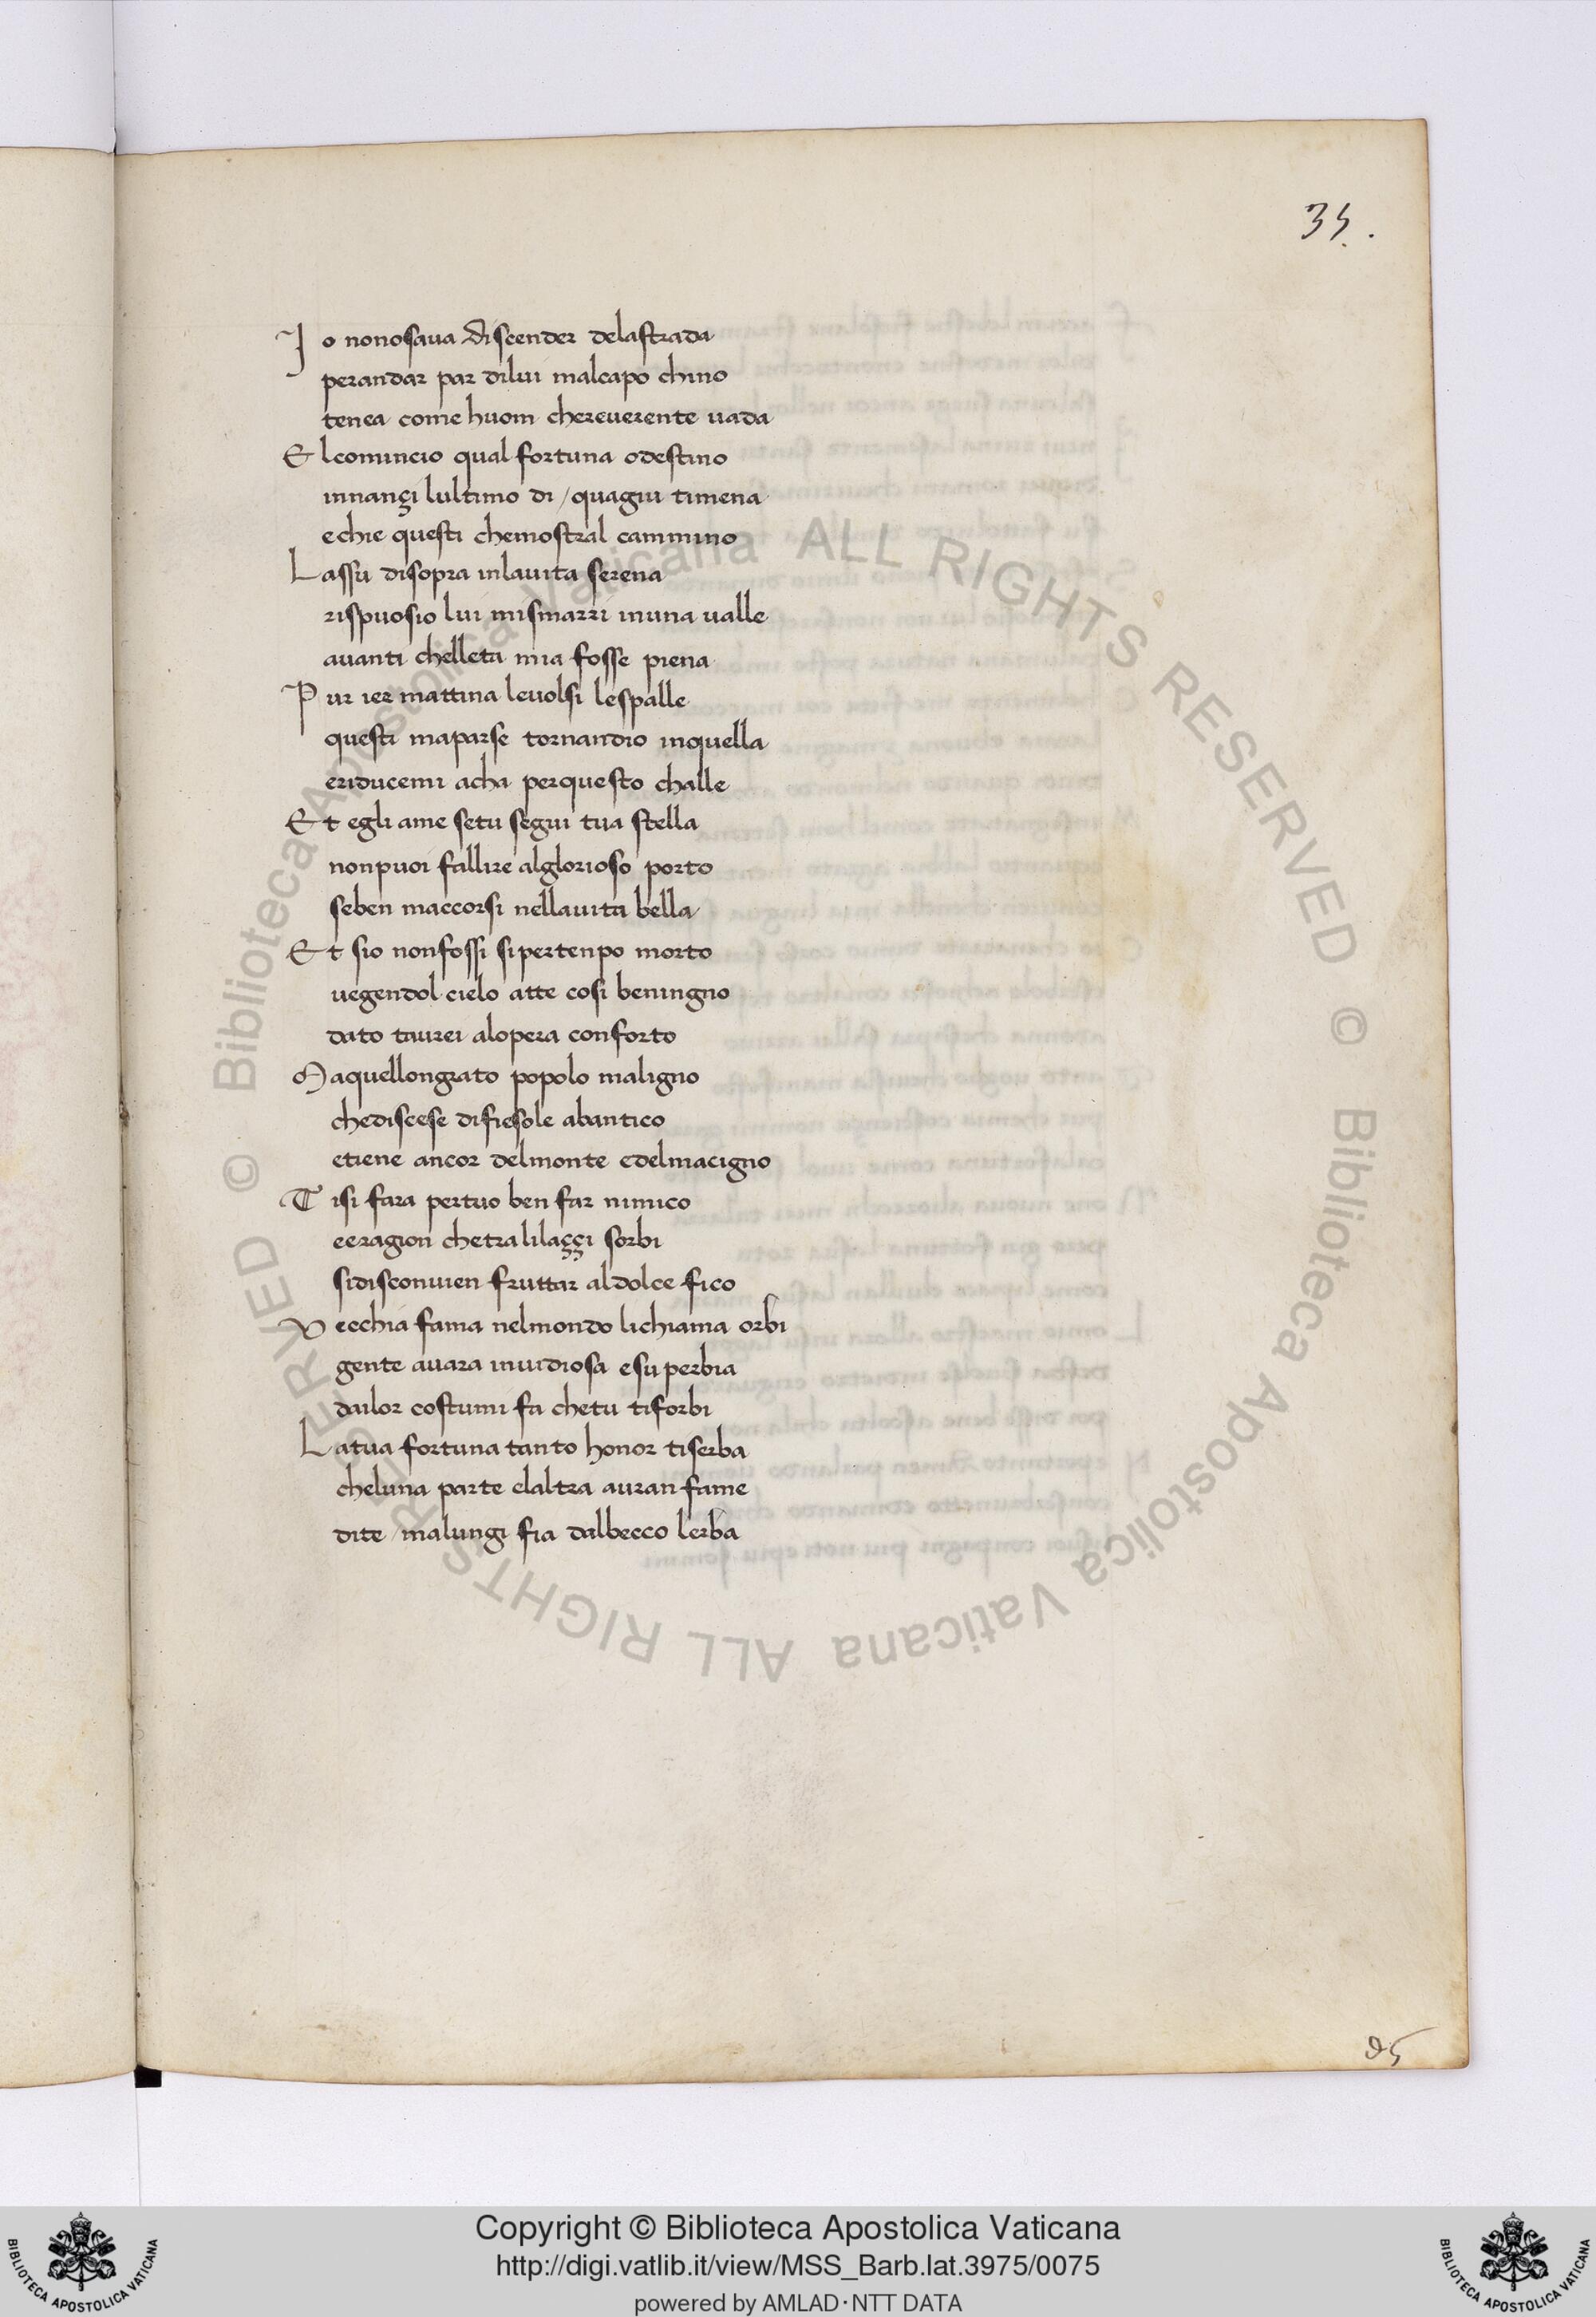 35.
Io nonosaua discender delastrada
perandar par dilui malcapo chino
tenea come huom chereuerente uada
El comincio qual fortuna odestino
innançi lultimo di / quagiu timena
echie questi chemostral cammino
Lassu disopra inlauita serena
rispuosio lui mismarri inuna ualle
auanti chelleta mia fosse piena
Pur ier mattina leuolsi lespalle
questi maparse tornandio inquella
eriducemi acha perquesto challe
Et egli ame setu segui tua stella
nonpuoi fallire alglorioso porto
seben maccorsi nellauita bella
Et sio nonfossi sipertenpo morto
uegendol cielo atte cosi beningno
dato taurei alopera conforto
Maquellongrato popolo maligno
chediscese difiesole abantico
etiene ancor delmonte edelmacigno
Tisi fara pertuo ben far nimico
eeragion chetralilaççi sorbi
sidisconuien fruttar aldolce fico
Vecchia fama nelmondo lichiama orbi
gente auara inuidiosa esuperbia
dailor costumi fa chetu tiforbi
Latua fortuna tanto honor tiserba
cheluna parte elaltra auran fame
dite / malungi fia dalbecco lerba
d5
© Biblioteca Apostolica Vaticana ALL RIGHTS RESERVED
© Biblioteca Apostolica Vaticana ALL RIGHTS RESERVED
BIBLIOTECA APOSTOLICA VATICANA
Copyright © Biblioteca Apostolica Vaticana
http://digi.vatlib.it/view/MSS_Barb.lat.3975/0075
powered by AMLAD·NTT DATA
BIBLIOTECA APOSTOLICA VATICANA